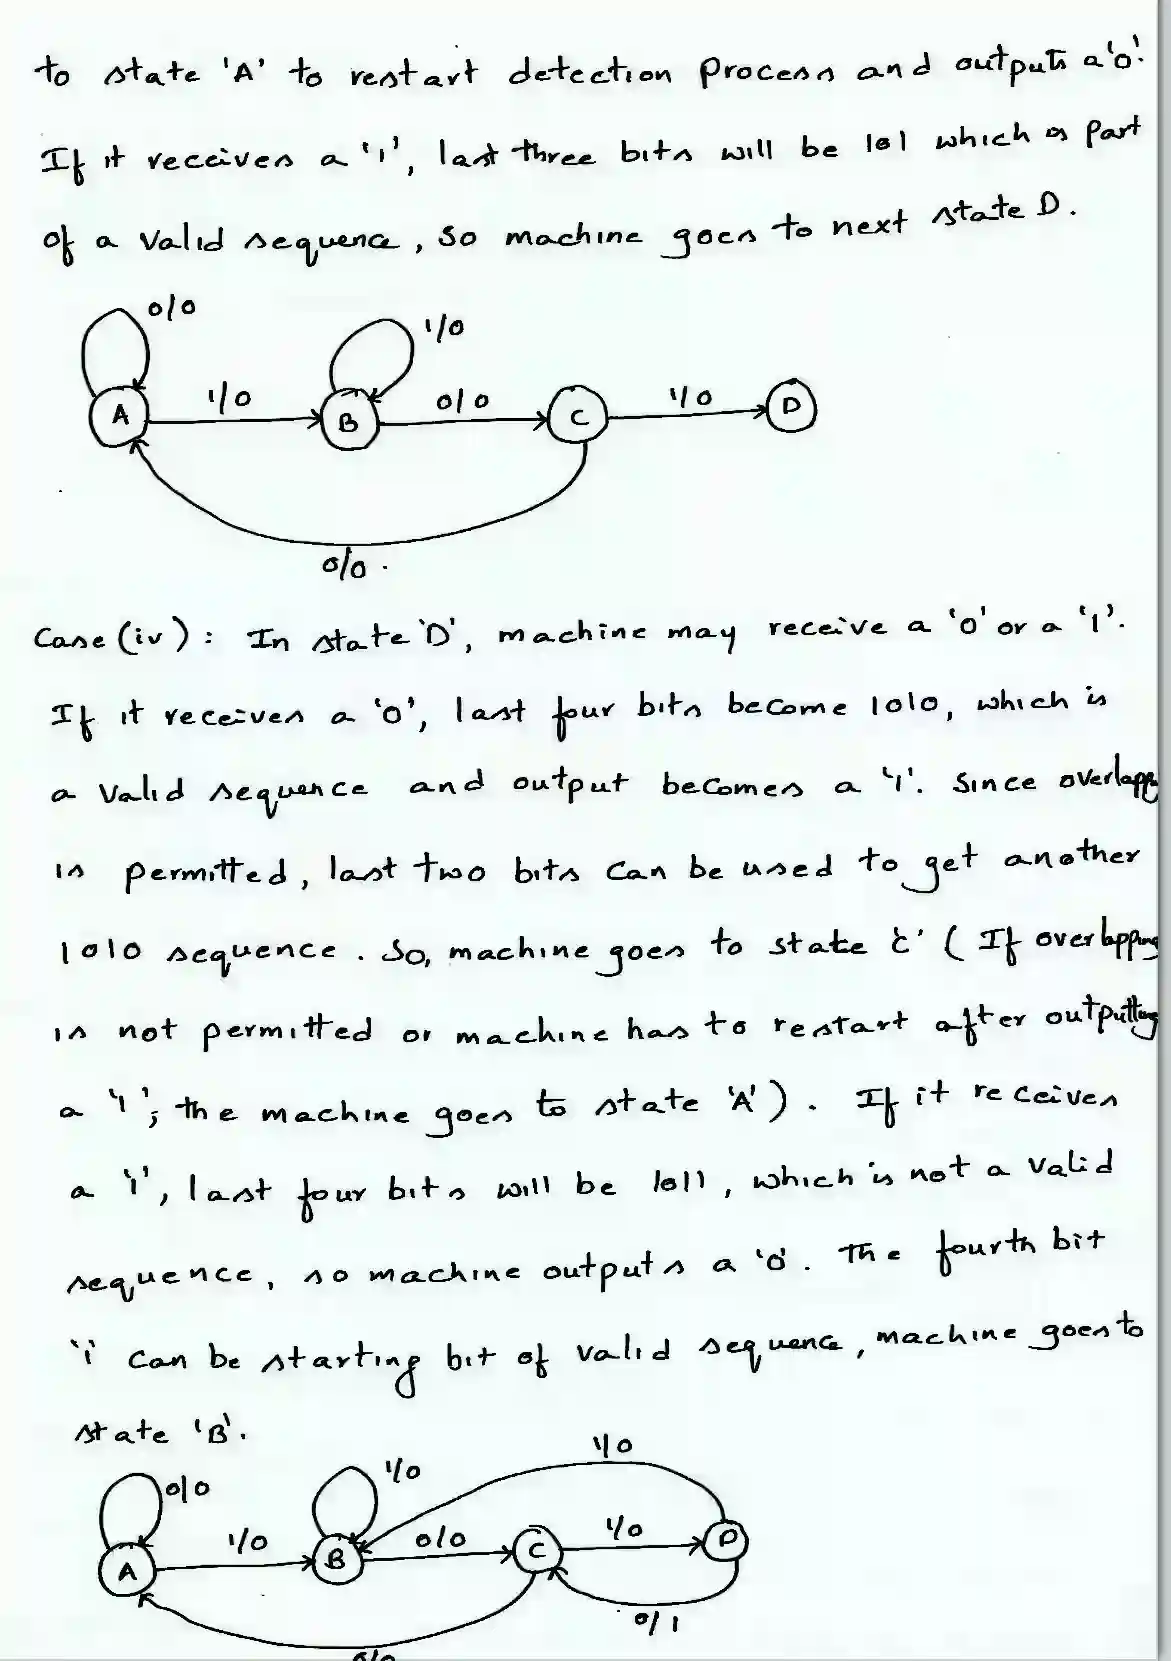 to state 'A' to restart detection process and outputs a '0'.
If it receives a '1', last three bits will be 101 which is part
of a valid sequence, so machine goes to next state D.
0/0
1/0
1/0
0/0
1/0
A
B
C
D
0/0
Case (iv): In state 'D', machine may receive a '0' or a '1'.
If it receives a '0', last four bits become 1010, which is
a valid sequence and output becomes a '1'. Since
is permitted, last two bits can be used to get another
1010 sequence. So, machine goes to state 'C' (If overlapping
is not permitted or machine has to restart after outputting
a '1', the machine goes to state 'A'). If it receives
a '1', last four bits will be 1011, which is not a valid
sequence, so machine outputs a '0'. The fourth bit
'1' can be starting bit of valid sequence, machine goes to
state 'B'.
1/0
0/0
1/0
1/0
0/0
1/0
A
B
C
D
0/1
0/0